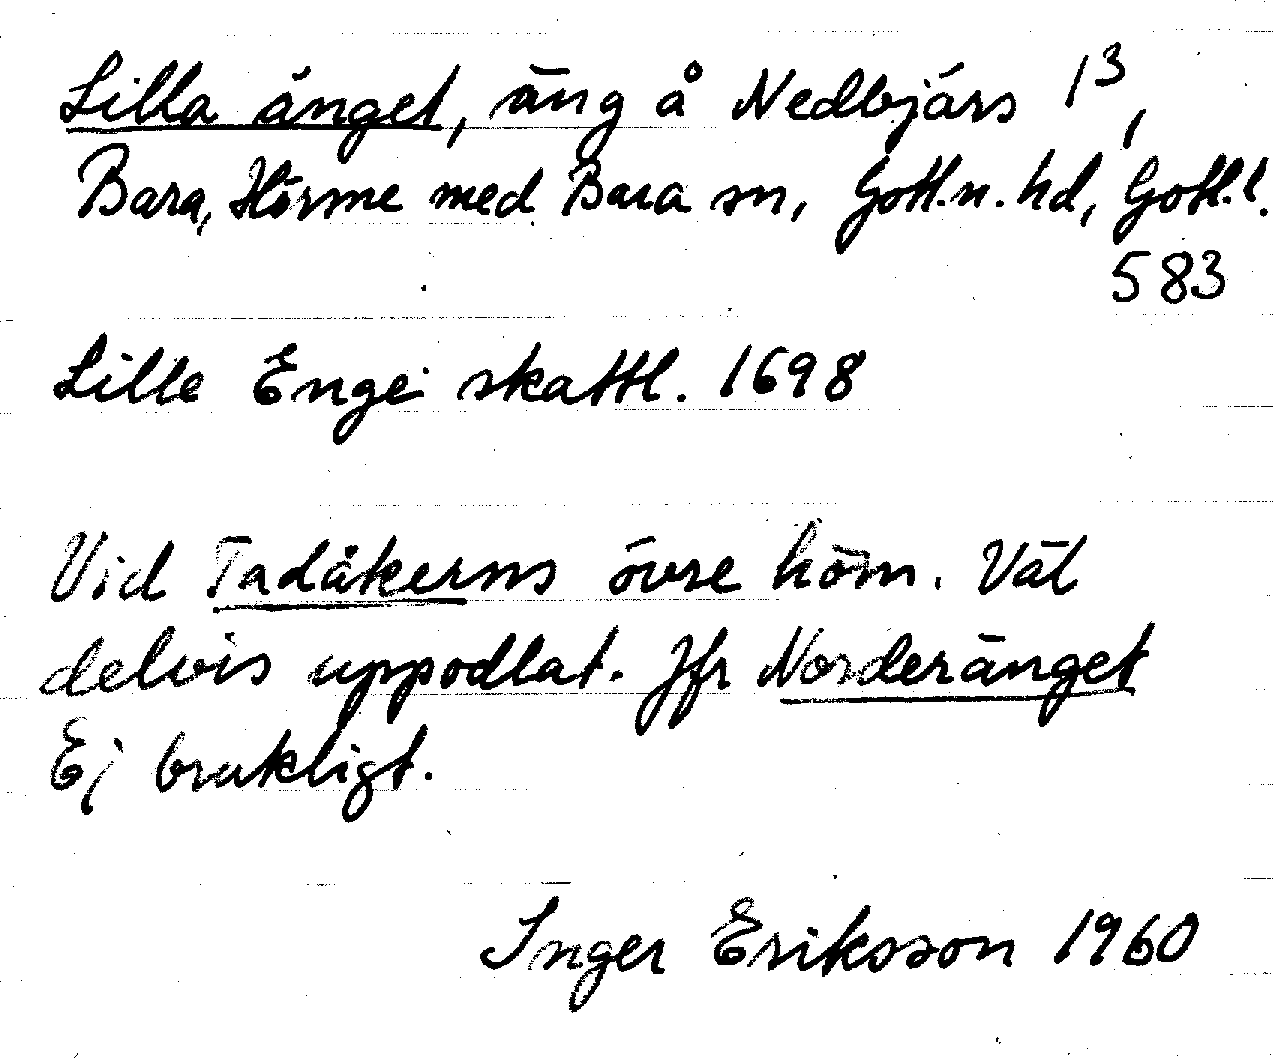 Lilla änget, äng å Nedbjärs 1³,
Bara, Hörsne med Bara sn, Gotl.n. hd, Gotl.l.
583
Lille Engei skattl. 1698
Vid Tadåkerns övre hörn. Väl
delvis uppodlat. Jfr Norderänget
Ej brukligt.
Inger Eriksson 1960